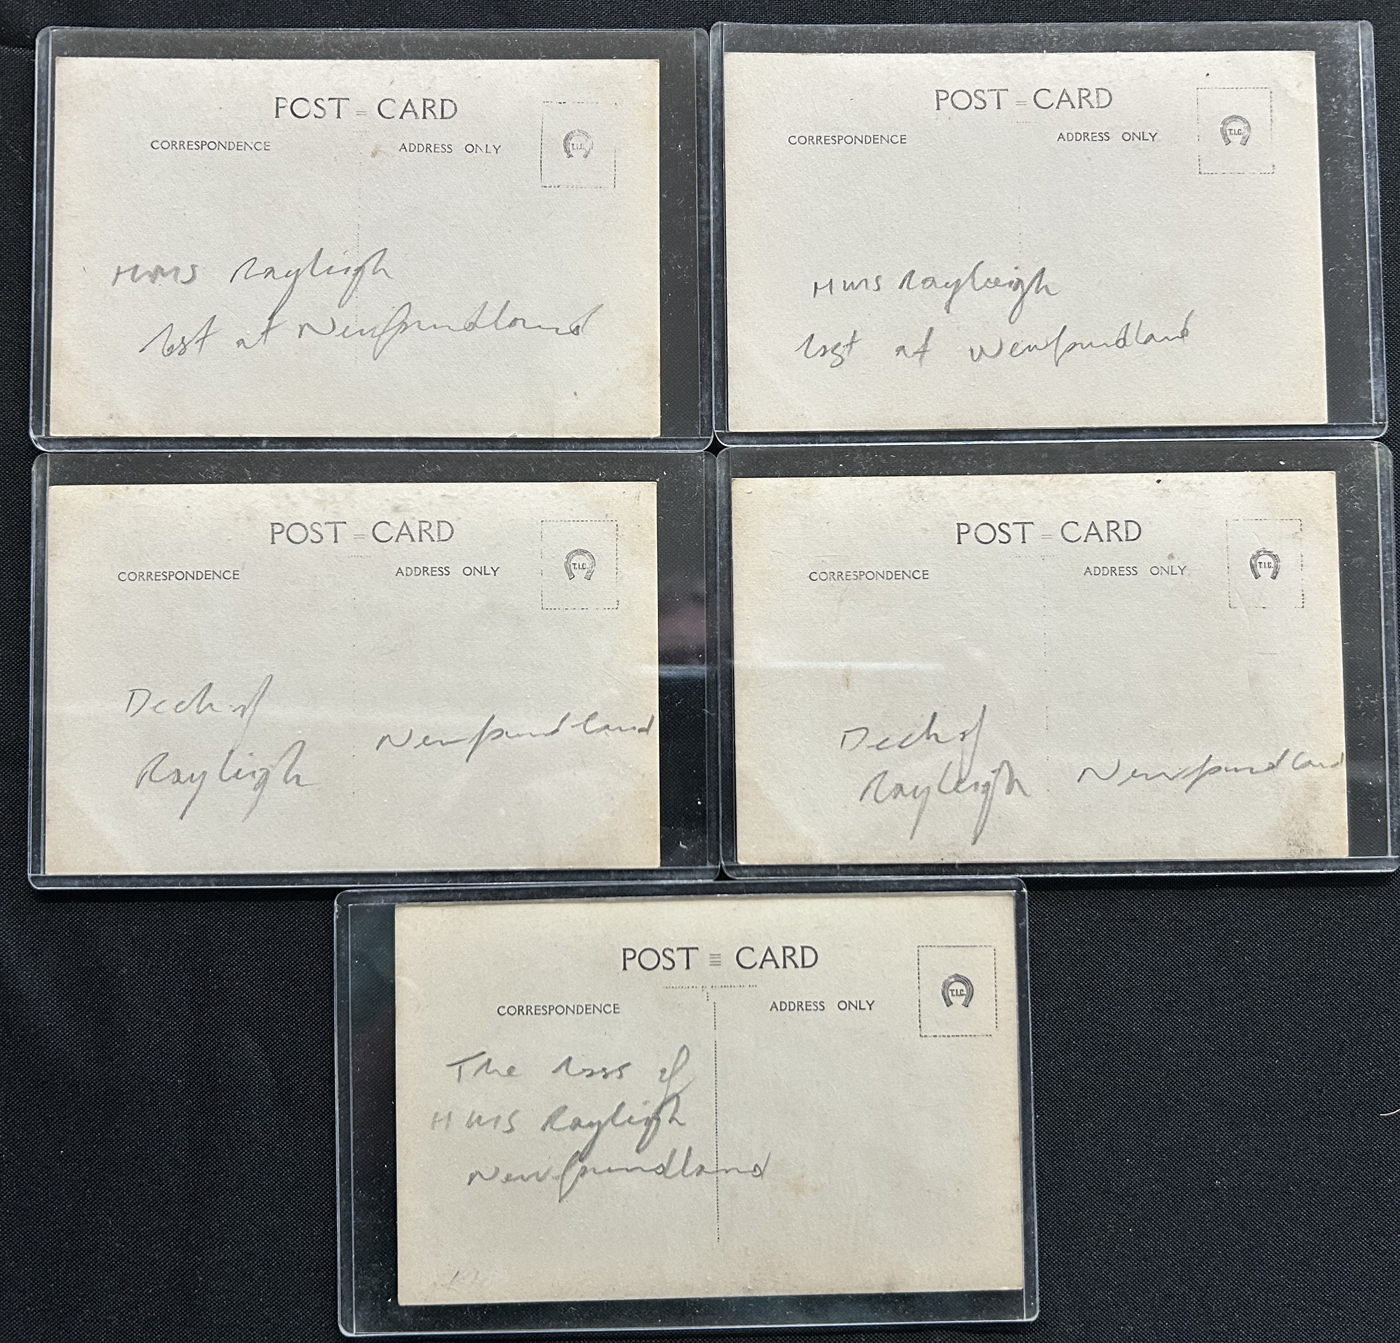 POST = CARD
CORRESPONDENCE ADDRESS ONLY
T.I.C.
HMS Rayleigh
lost at Newfoundland
POST = CARD
CORRESPONDENCE ADDRESS ONLY
T.I.C.
HMS Rayleigh
lost at Newfoundland
POST = CARD
CORRESPONDENCE ADDRESS ONLY
T.I.C.
Deck of
Rayleigh Newfoundland
POST = CARD
CORRESPONDENCE ADDRESS ONLY
T.I.C.
Deck of
Rayleigh Newfoundland
POST ≡ CARD
CORRESPONDENCE ADDRESS ONLY
T.I.C.
The loss of
HMS Rayleigh
Newfoundland